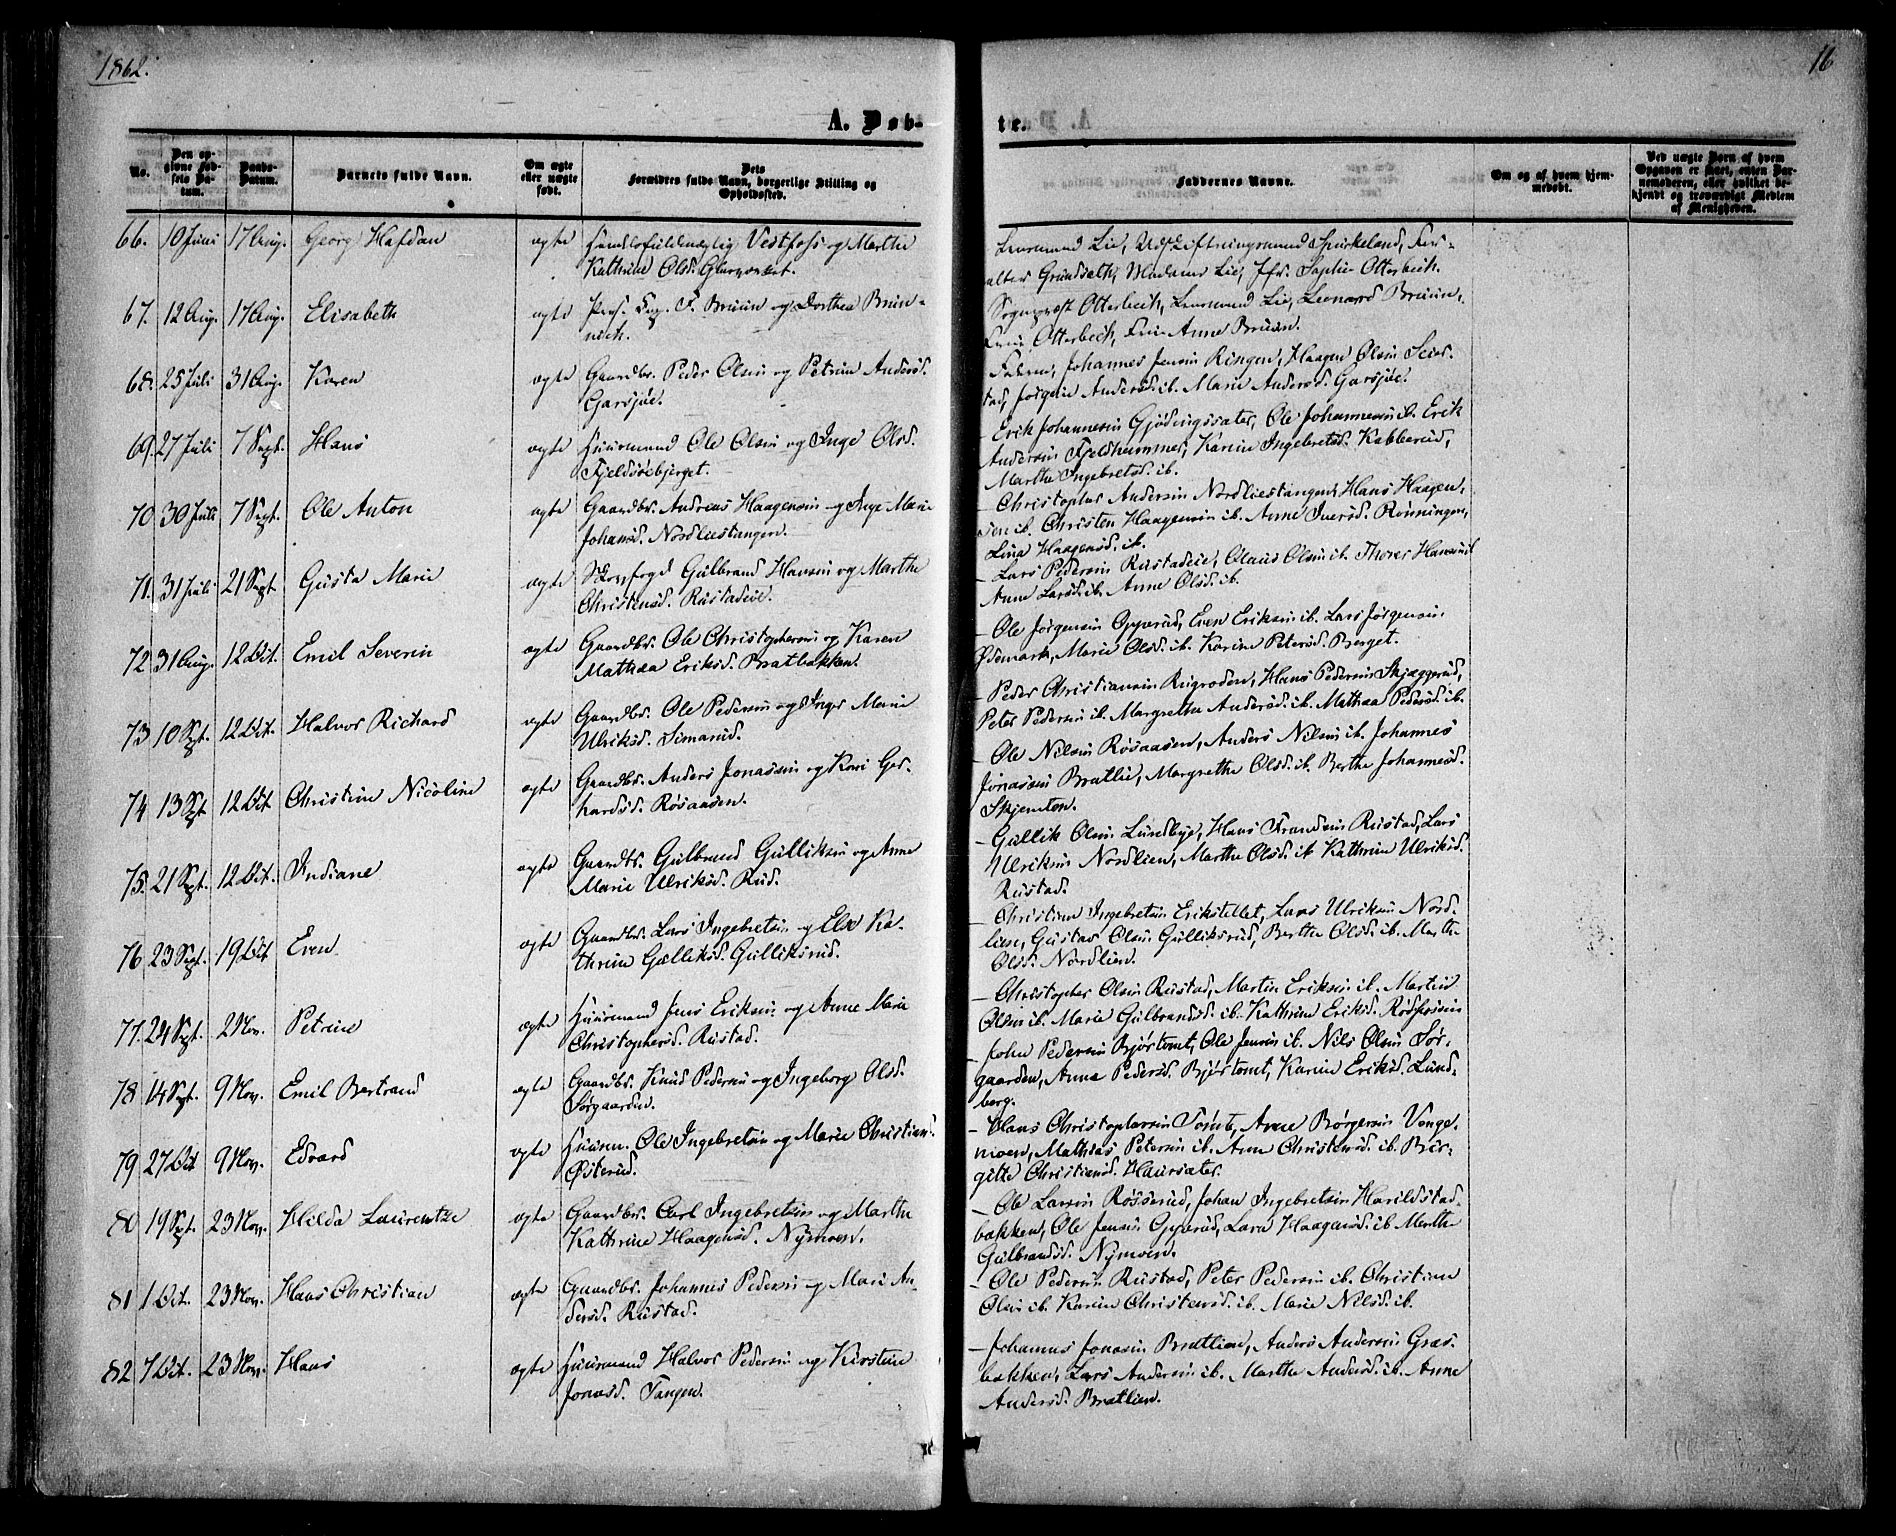 1862.
16
A. Døb-
te.
No.
Den op-
givne Fød-
sels Da-
tum.
Daabs-
Datum.
Barnets fulde Navn.
Om ægte
eller uægte
født.
Dets
Forældres fulde Navn, borgerlige Stilling og
Opholdssted.
Faddernes Navne.
Om og af hvem hjem-
medøbt.
Ved uægte Børn af hvem
Opgaven er skeet, enten Bar-
nemoderen, eller hvilket be-
kjendt og troværdigt Medlem
af Menigheden.
66. 10 Juni 17 Aug. Georg Hafdan ægte Handlsfuldmægtig Vestfoss og Marthe
Kathrine Olsd. Glasværket.
Lensmand Lie, Udskiftningsmand Spirkeland, For-
valter Grundsæth, Madame Lie, Jfr. Sophie Otterbech.
67. 12 Aug. 17 Aug. Elisabeth ægte Pers. Cap. F. Bruun og Dorthea Brün-
nich.
Sogneprest Otterbech, Lensmand Lie, Leonard Bruun,
Frue Otterbech, Frue Anne Bruun.
68. 25 Juli 31 Aug. Karen ægte Gaardbr. Peder Olsen og Petrine Andersd.
Garsjøe.
Faderen, Johannes Jensen Ringen, Haagen Olsen Seier-
stad, Jørgen Andersd. ib. Marie Andersd. Garsjøe.
69. 27 Juli 7 Sept. Hans ægte Huusmand Ole Olsen og Inge Olsd.
Fjeldsøebjerget.
- Erik Johannesen Gjødingssæter, Ole Johannesen ib. Erik
Andersen Fjeldhammer, Karine Ingebretsd. Kabberud,
Marthe Ingebretsd. ib.
70 30 Juli 7 Sept. Ole Anton ægte Gaardbr. Andreas Haagensen og Inge Marie
Johansd. Nordliestangen.
- Christopher Andersen Nordliestangen, Hans Haagen-
sen ib. Christen Haagensen ib. Anne Iversd. Rønningen,
Lina Haagensd. ib.
71. 31 Juli 21 Sept. Gusta Marie ægte Skovfogd Gulbrand Hansen og Marthe
Christensd. Rustadeie.
- Lars Pedersen Rustadeie, Olaus Olsen ib. Thorer Hansen ib
Anne Larsd. ib. Anne Olsd. ib.
72 31 Aug. 12 Oct. Emil Severin ægte Gaardbr. Ole Christophersen og Karen
Mathea Eriksd. Bratbakken.
- Ole Jørgensen Opperud, Even Eriksen ib. Lars Jørgensen
Ødemark, Marie Olsd. ib. Karine Petersd. Berget.
73 10 Sept. 12 Oct. Halvor Richard ægte Gaardbr. Ole Pedersen og Inger Marie
Ulriksd. Simarud.
- Peder Christiansen Rugroden, Hans Pedersen Skjæggerud,
Peter Pedersen ib. Margrethe Andersd. ib. Mathea Pedersd. ib.
74 13 Sept 12 Oct Christine Nicoline ægte Gaardbr. Anders Jonassen og Kari Ger-
hardsd. Røsaasen.
- Ole Nilsen Røsaasen, Anders Nilsen ib. Johannes
Jonassen Bratlie, Margrethe Olsd. ib. Berthe Johannesd.
Skjemton.
75. 21 Sept. 12 Oct. Indiane ægte Gaardbr. Gulbrand Gulliksen og Anne
Marie Ulriksd. Rud.
- Gullik Olsen Lundbye, Hans Frandsen Rustad, Lars
Ulriksen Nordlien, Marthe Olsd. ib Kathrine Ulriksd.
Rustad.
76 23 Sept. 19 Oct Even ægte Gaardbr. Lars Ingebretsen og Else Ka-
thrine Gulliksd. Gulliksrud.
- Christian Ingebretsen Erikstellet, Lars Ulriksen Nord-
lien, Gustav Olsen Gulliksrud, Berthe Olsd. ib. Marthe
Olsd. Nordlien.
77. 24 Sept. 2 Nov. Petrine ægte Huusmand Jens Eriksen og Anne Marie
Christophersd. Rustad.
- Christopher Olsen Rustad, Martin Eriksen ib. Martin
Olsen ib. Marie Gulbrandsd. ib. Kathrine Eriksd.
78 14 Sept. 9 Nov. Emil Bertrand ægte Gaardbr. Knud Pedersen og Ingeborg Olsd.
Sørgaarden.
- John Pedersen Bjørtomt, Ole Jensen ib. Nils Olsen Sør-
gaarden, Anne Pedersd. Bjørtomt, Karine Eriksd. Lund-
berg.
79 27 Oct 9 Nov. Edvard ægte Huusm. Ole Ingebretsen og Marie Christiansd.
Østerud.
- Hans Christophersen Tomt, Arne Børgersen Venge-
moen, Mathias Petersen ib. Anne Christensd. ib. Bir-
gitte Christiansd. Haursæter.
80 19 Sept. 23 Nov. Hilda Laurentze ægte Gaardbr. Carl Ingebretsen og Marthe
Kathrine Haagensd. Nymoen.
- Ole Larsen Røsserud, Johan Ingebretsen Harildstad-
bakken, Ole Jensen Opperud, Lara Haagensd. ib Marthe
Gulbrandsd. Nymoen.
81 1 Oct. 23 Nov. Hans Christian ægte Gaardbr. Johannes Pedersen og Mari An-
dersd. Rustad.
- Ole Pedersen Rustad, Peter Pedersen ib. Christian
Olsen ib. Karine Christensd. ib. Marie Nilsd. ib.
82 7 Oct. 23 Nov. Hans ægte Huusmand Halvor Pedersen og Kirstine
Jonasd. Tangen.
- Johannes Jonasen Bratlien, Anders Andersen Græs-
bakken, Lars Andersen ib. Marthe Andersd. ib. Anne
Andersd. Bratlien.